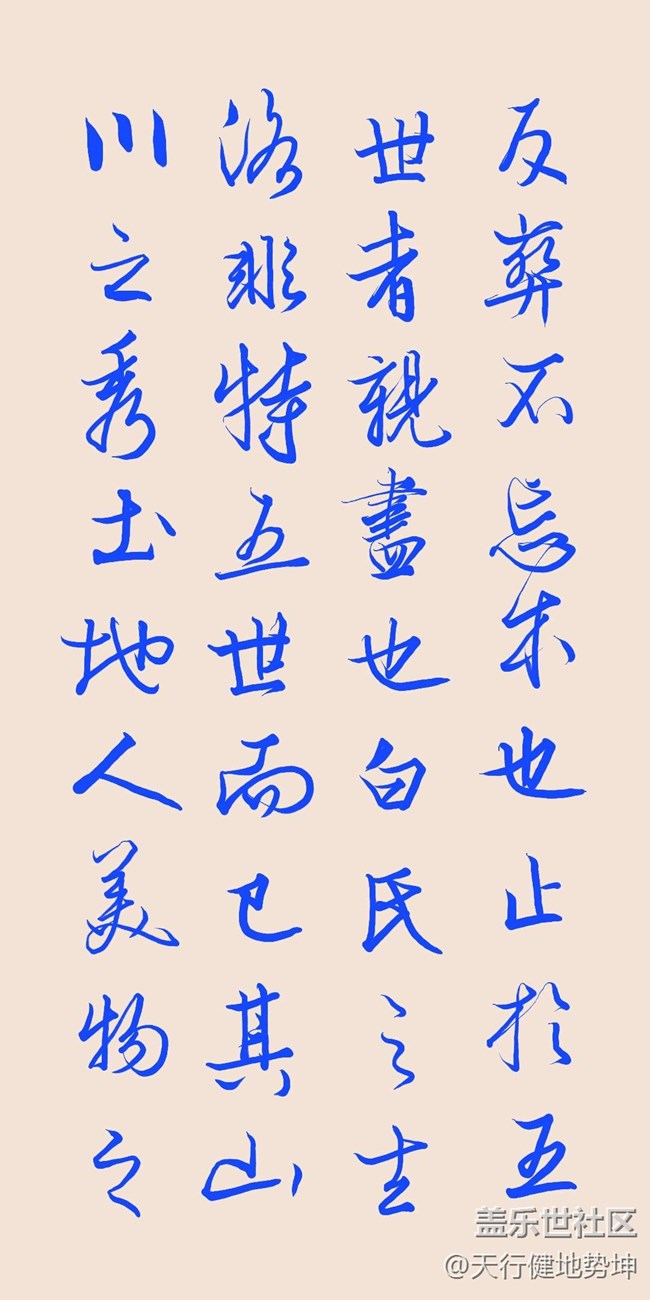 反葬不忘本也止於五
世者親盡也白氏之去
洛非特五世而已其山
川之秀土地人美物之
盖乐世社区
@天行健地势坤